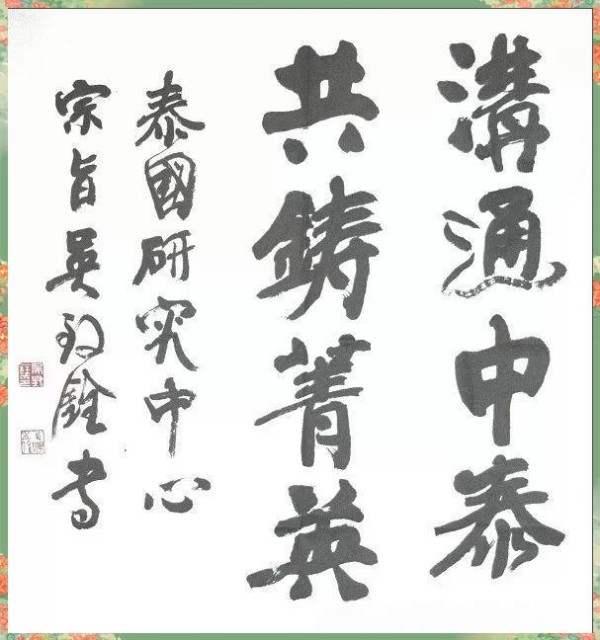 溝通中泰
共鑄菁英
泰國研究中心
宗旨吳銓书